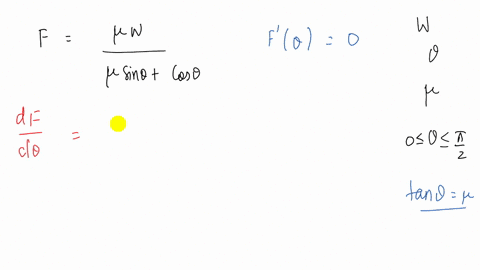 F = μW / (μ sinθ + cosθ)
F'(θ) = 0
dF/dθ =
W
θ
μ
0 ≤ θ ≤ π/2
tanθ = μ